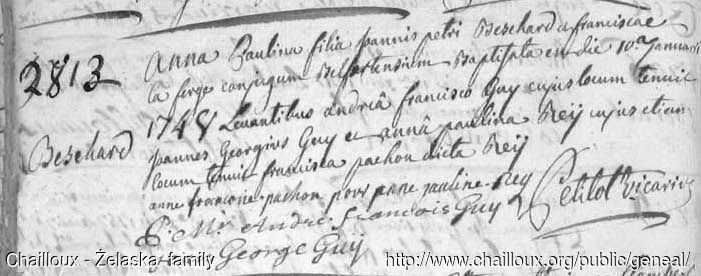 2813
Beschard
Anna Paulina filia Joannis petri Beschard et franciscae
la forges conjugum Belfortensium Baptisata est die 10.a Januarii
1748 Levantibus andreâ francisco Guy cujus locum tenuit
Joannes Georgius Guy et annâ paulina Reÿ cujus etiam
locum tenuit francisca pachon dicta Reÿ
anne francoise pachon pour anne pauline Rey
P. Mr. andre francois Guy
George Guÿ
Petitot vicarius
Chailloux - Żelaska family
http://www.chailloux.org/public/geneal/